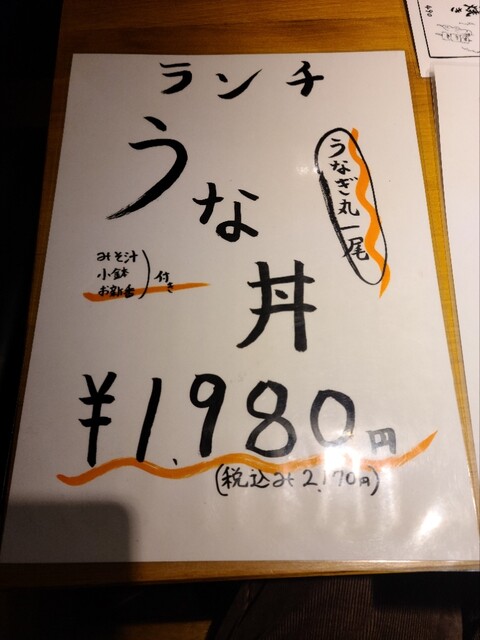 ランチ
うな丼
うなぎ丸一尾
みそ汁
小鉢
お新香
付き
¥1,980円
(税込み2,170円)
焼き
490